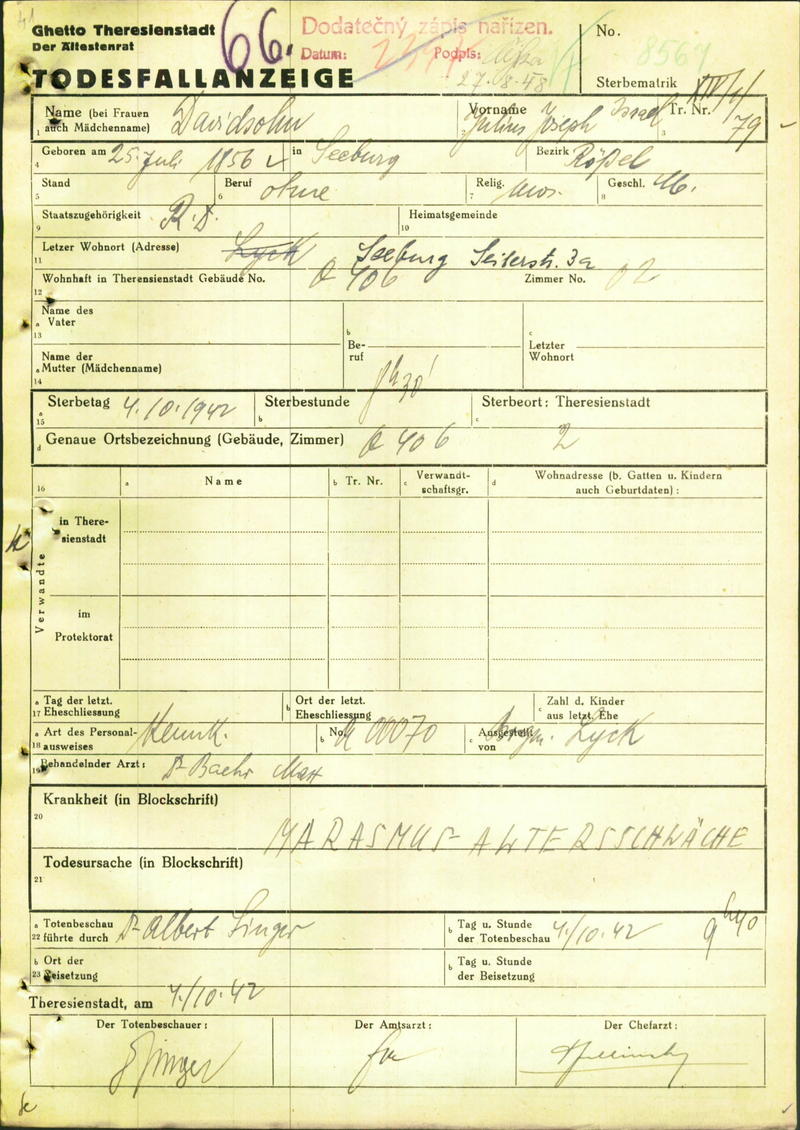 41
Ghetto Theresienstadt
Der Ältestenrat
TODESFALLANZEIGE
66.
Dodatečný zápis nařízen.
Datum: Podpis:
27.8.48
No. 8567
Sterbematrik
Name (bei Frauen auch Mädchenname) Davidsohn
1
Vorname Julius Joseph Israel
2
Tr. Nr. XIV/1/79
3
Geboren am 25. Juli 1856 in Seeburg Bezirk Rößel
4
Stand Beruf ohne Relig. mos. Geschl. M.
5 6 7 8
Staatszugehörigkeit R.D. Heimatsgemeinde
9 10
Letzer Wohnort (Adresse) Lyck Seeburg Seilerstr. 3a
11
Wohnhaft in Therensienstadt Gebäude No. Q 406 Zimmer No. 02
12
Name des
a Vater
13
b
Be-
ruf
c
Letzter
Wohnort
Name der
a Mutter (Mädchenname)
14
a Sterbetag 4.10.1942 b Sterbestunde h 30' c Sterbeort: Theresienstadt
15
d Genaue Ortsbezeichnung (Gebäude, Zimmer) Q 406 2
16 a Name b Tr. Nr. c Verwandt-
schaftsgr. d Wohnadresse (b. Gatten u. Kindern
auch Geburtdaten) :
Verwandte
in There-
sienstadt
im
Protektorat
a Tag der letzt.
17 Eheschliessung
b Ort der letzt.
Eheschliessung
c Zahl d. Kinder
aus letzt. Ehe
a Art des Personal-
18 ausweises Kennk.
b No. A 00070
c Ausgestellt
von Lyck
19 Behandelnder Arzt: Dr Baehr Max
Krankheit (in Blockschrift)
20
MARASMUS - ALTERSSCHWÄCHE
Todesursache (in Blockschrift)
21
a Totenbeschau
22 führte durch Dr Albert Singer
b Tag u. Stunde
der Totenbeschau 4/10.42 9h40
b Ort der
23 Beisetzung
b Tag u. Stunde
der Beisetzung
Theresienstadt, am 4/10.42
Der Totenbeschauer: Der Amtsarzt: Der Chefarzt:
Singer